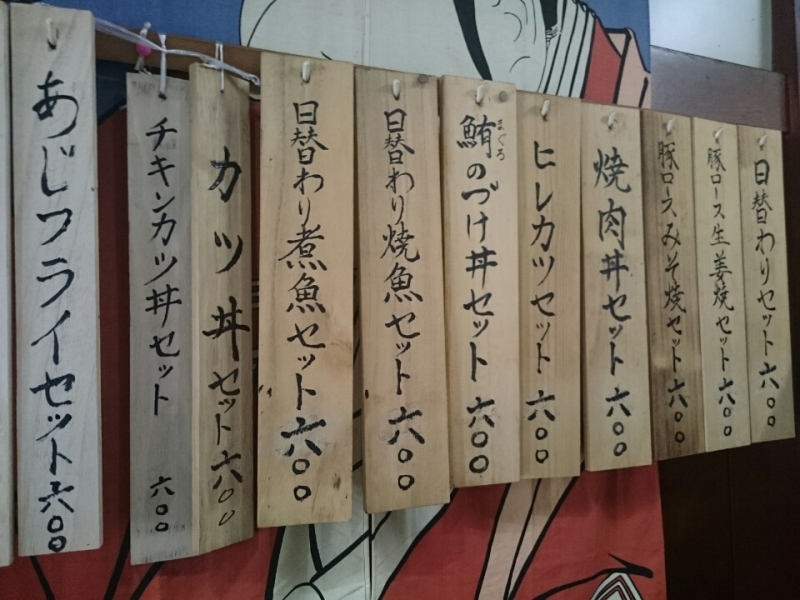 日替わりセット六〇〇
豚ロース生姜焼セット六〇〇
豚ロースみそ焼セット六〇〇
焼肉丼セット六〇〇
ヒレカツセット六〇〇
鮪まぐろのづけ丼セット六〇〇
日替わり焼魚セット六〇〇
日替わり煮魚セット六〇〇
カツ丼セット六〇〇
チキンカツ丼セット六〇〇
あじフライセット六〇〇